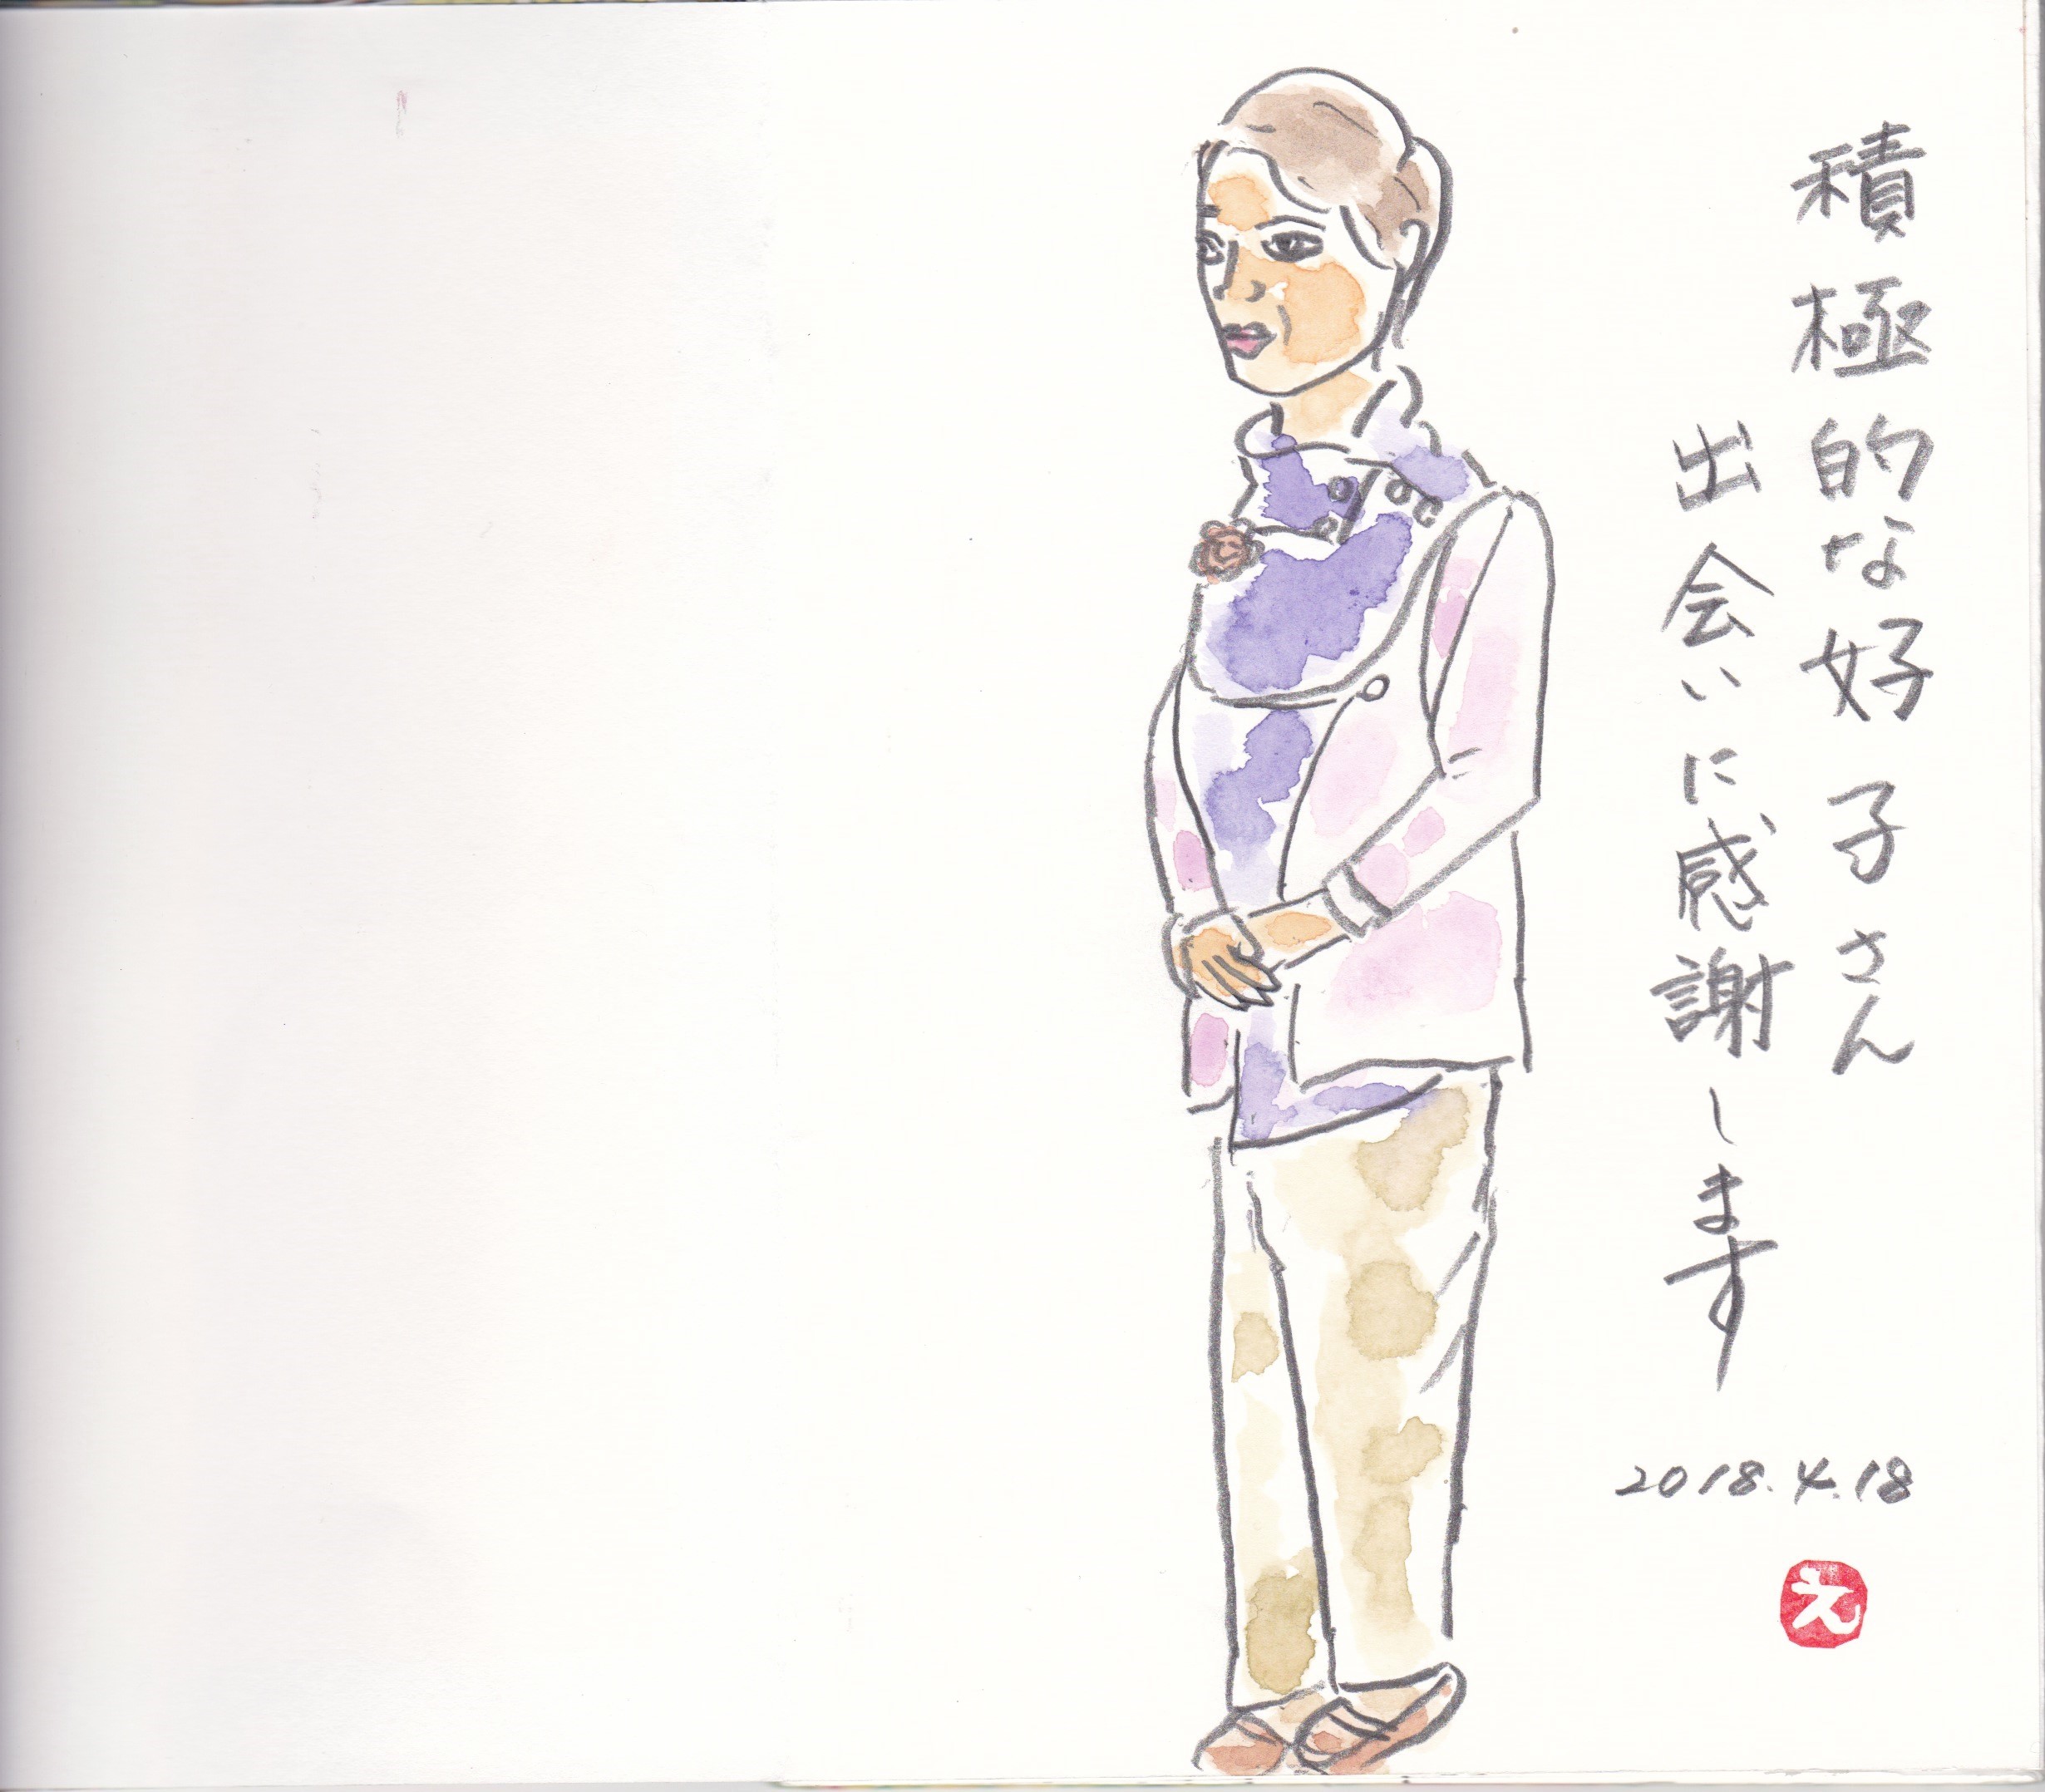 積極的な好子さん
出会いに感謝します
2018.4.18
え